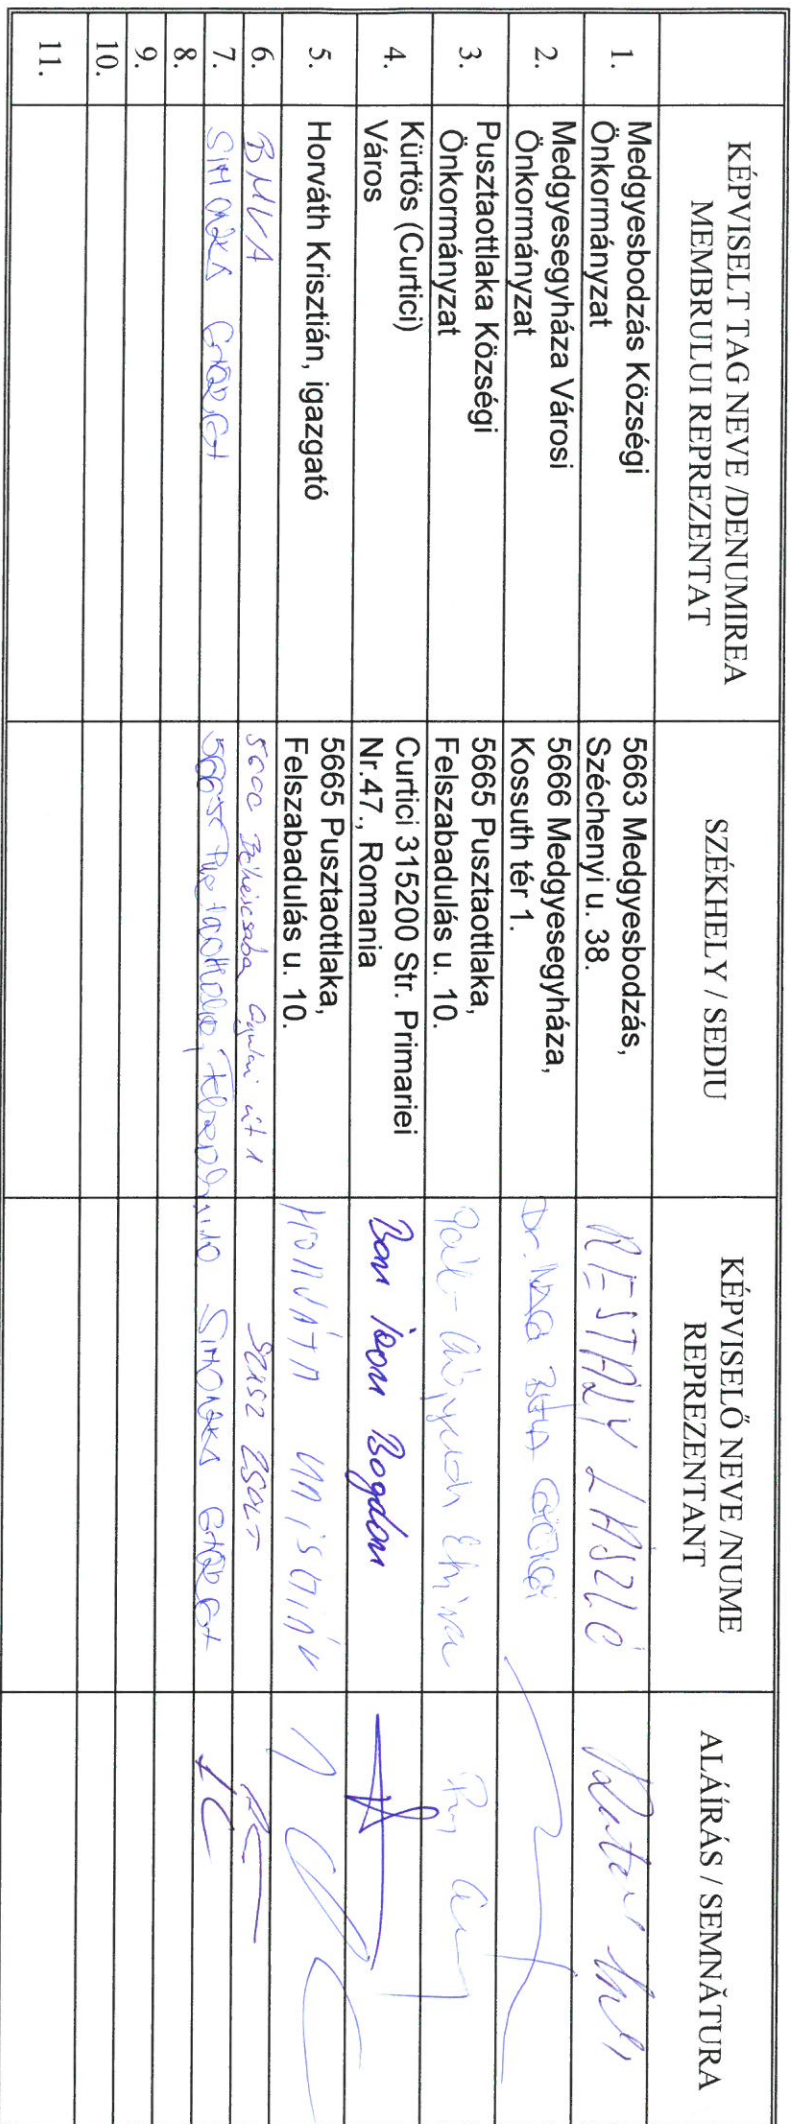 KÉPVISELT TAG NEVE /DENUMIREA
MEMBRULUI REPREZENTAT
SZÉKHELY / SEDIU
KÉPVISELŐ NEVE /NUME
REPREZENTANT
ALÁÍRÁS / SEMNĂTURA
1.
Medgyesbodzás Községi
Önkormányzat
5663 Medgyesbodzás,
Széchenyi u. 38.
LÁSZLÓ
2.
Medgyesegyháza Városi
Önkormányzat
5666 Medgyesegyháza,
Kossuth tér 1.
Dr. NAGY BÉLA
3.
Pusztaottlaka Községi
Önkormányzat
5665 Pusztaottlaka,
Felszabadulás u. 10.
4.
Kürtös (Curtici)
Város
Curtici 315200 Str. Primariei
Nr.47., Romania
Ban Ioan Bogdan
5.
Horváth Krisztián, igazgató
5665 Pusztaottlaka,
Felszabadulás u. 10.
HORVÁTH KRISZTIÁN
6.
BMVA
5600 Békéscsaba Gyulai út 1
SZÁSZ ZSOLT
7.
SIMONKA
5665 Pusztaottlaka,
SIMONKA
8.
9.
10.
11.